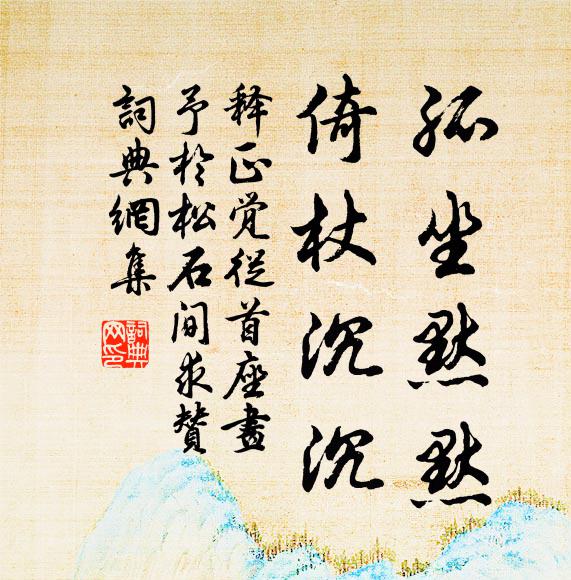 孤坐默默
倚杖沉沉
释正觉從首座畫
予於松石间求贊
詞典網集
詞典网印